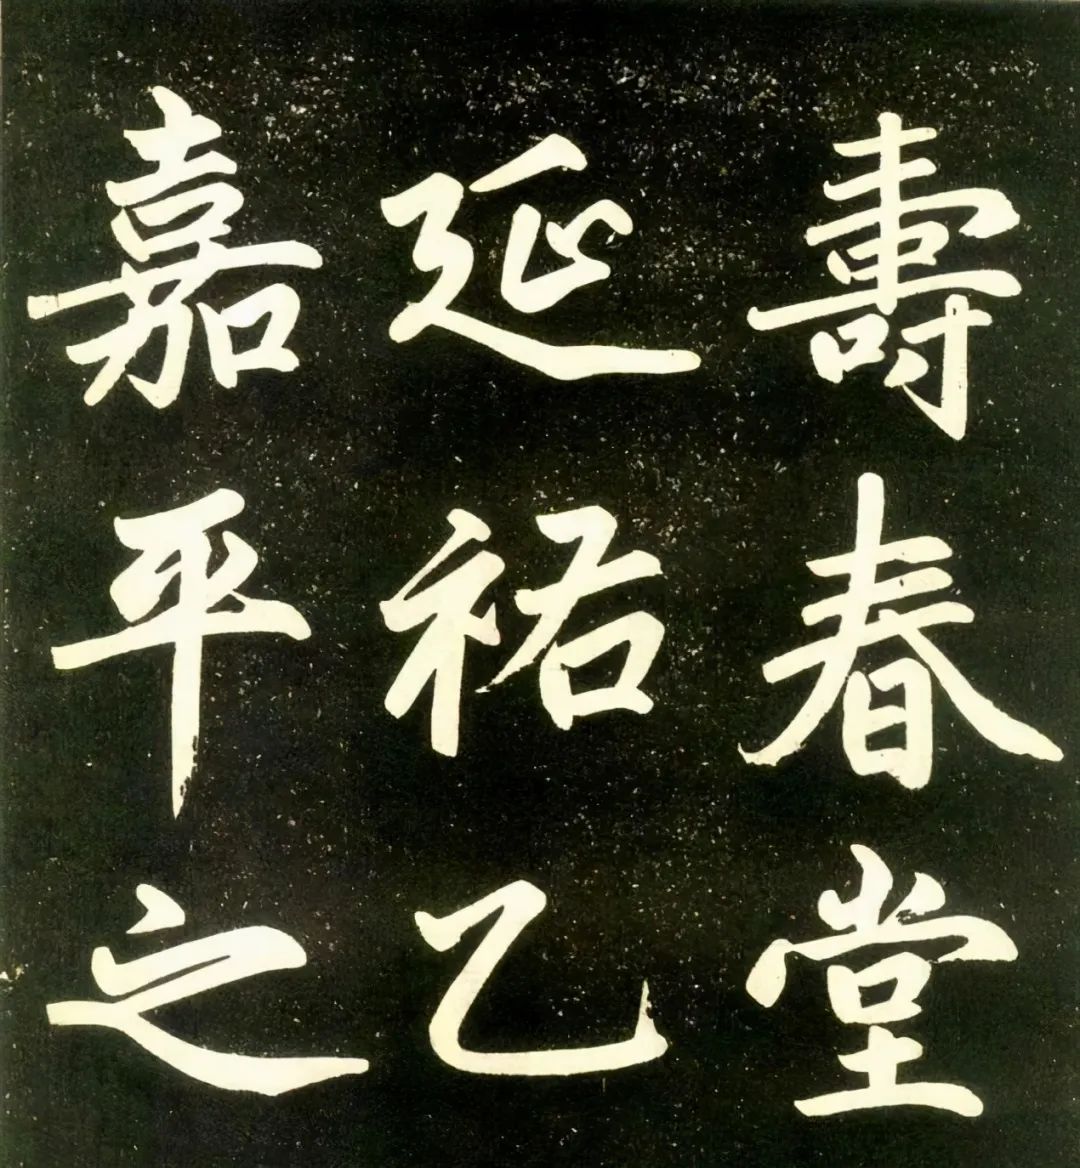 壽春堂
延祐乙
嘉平之